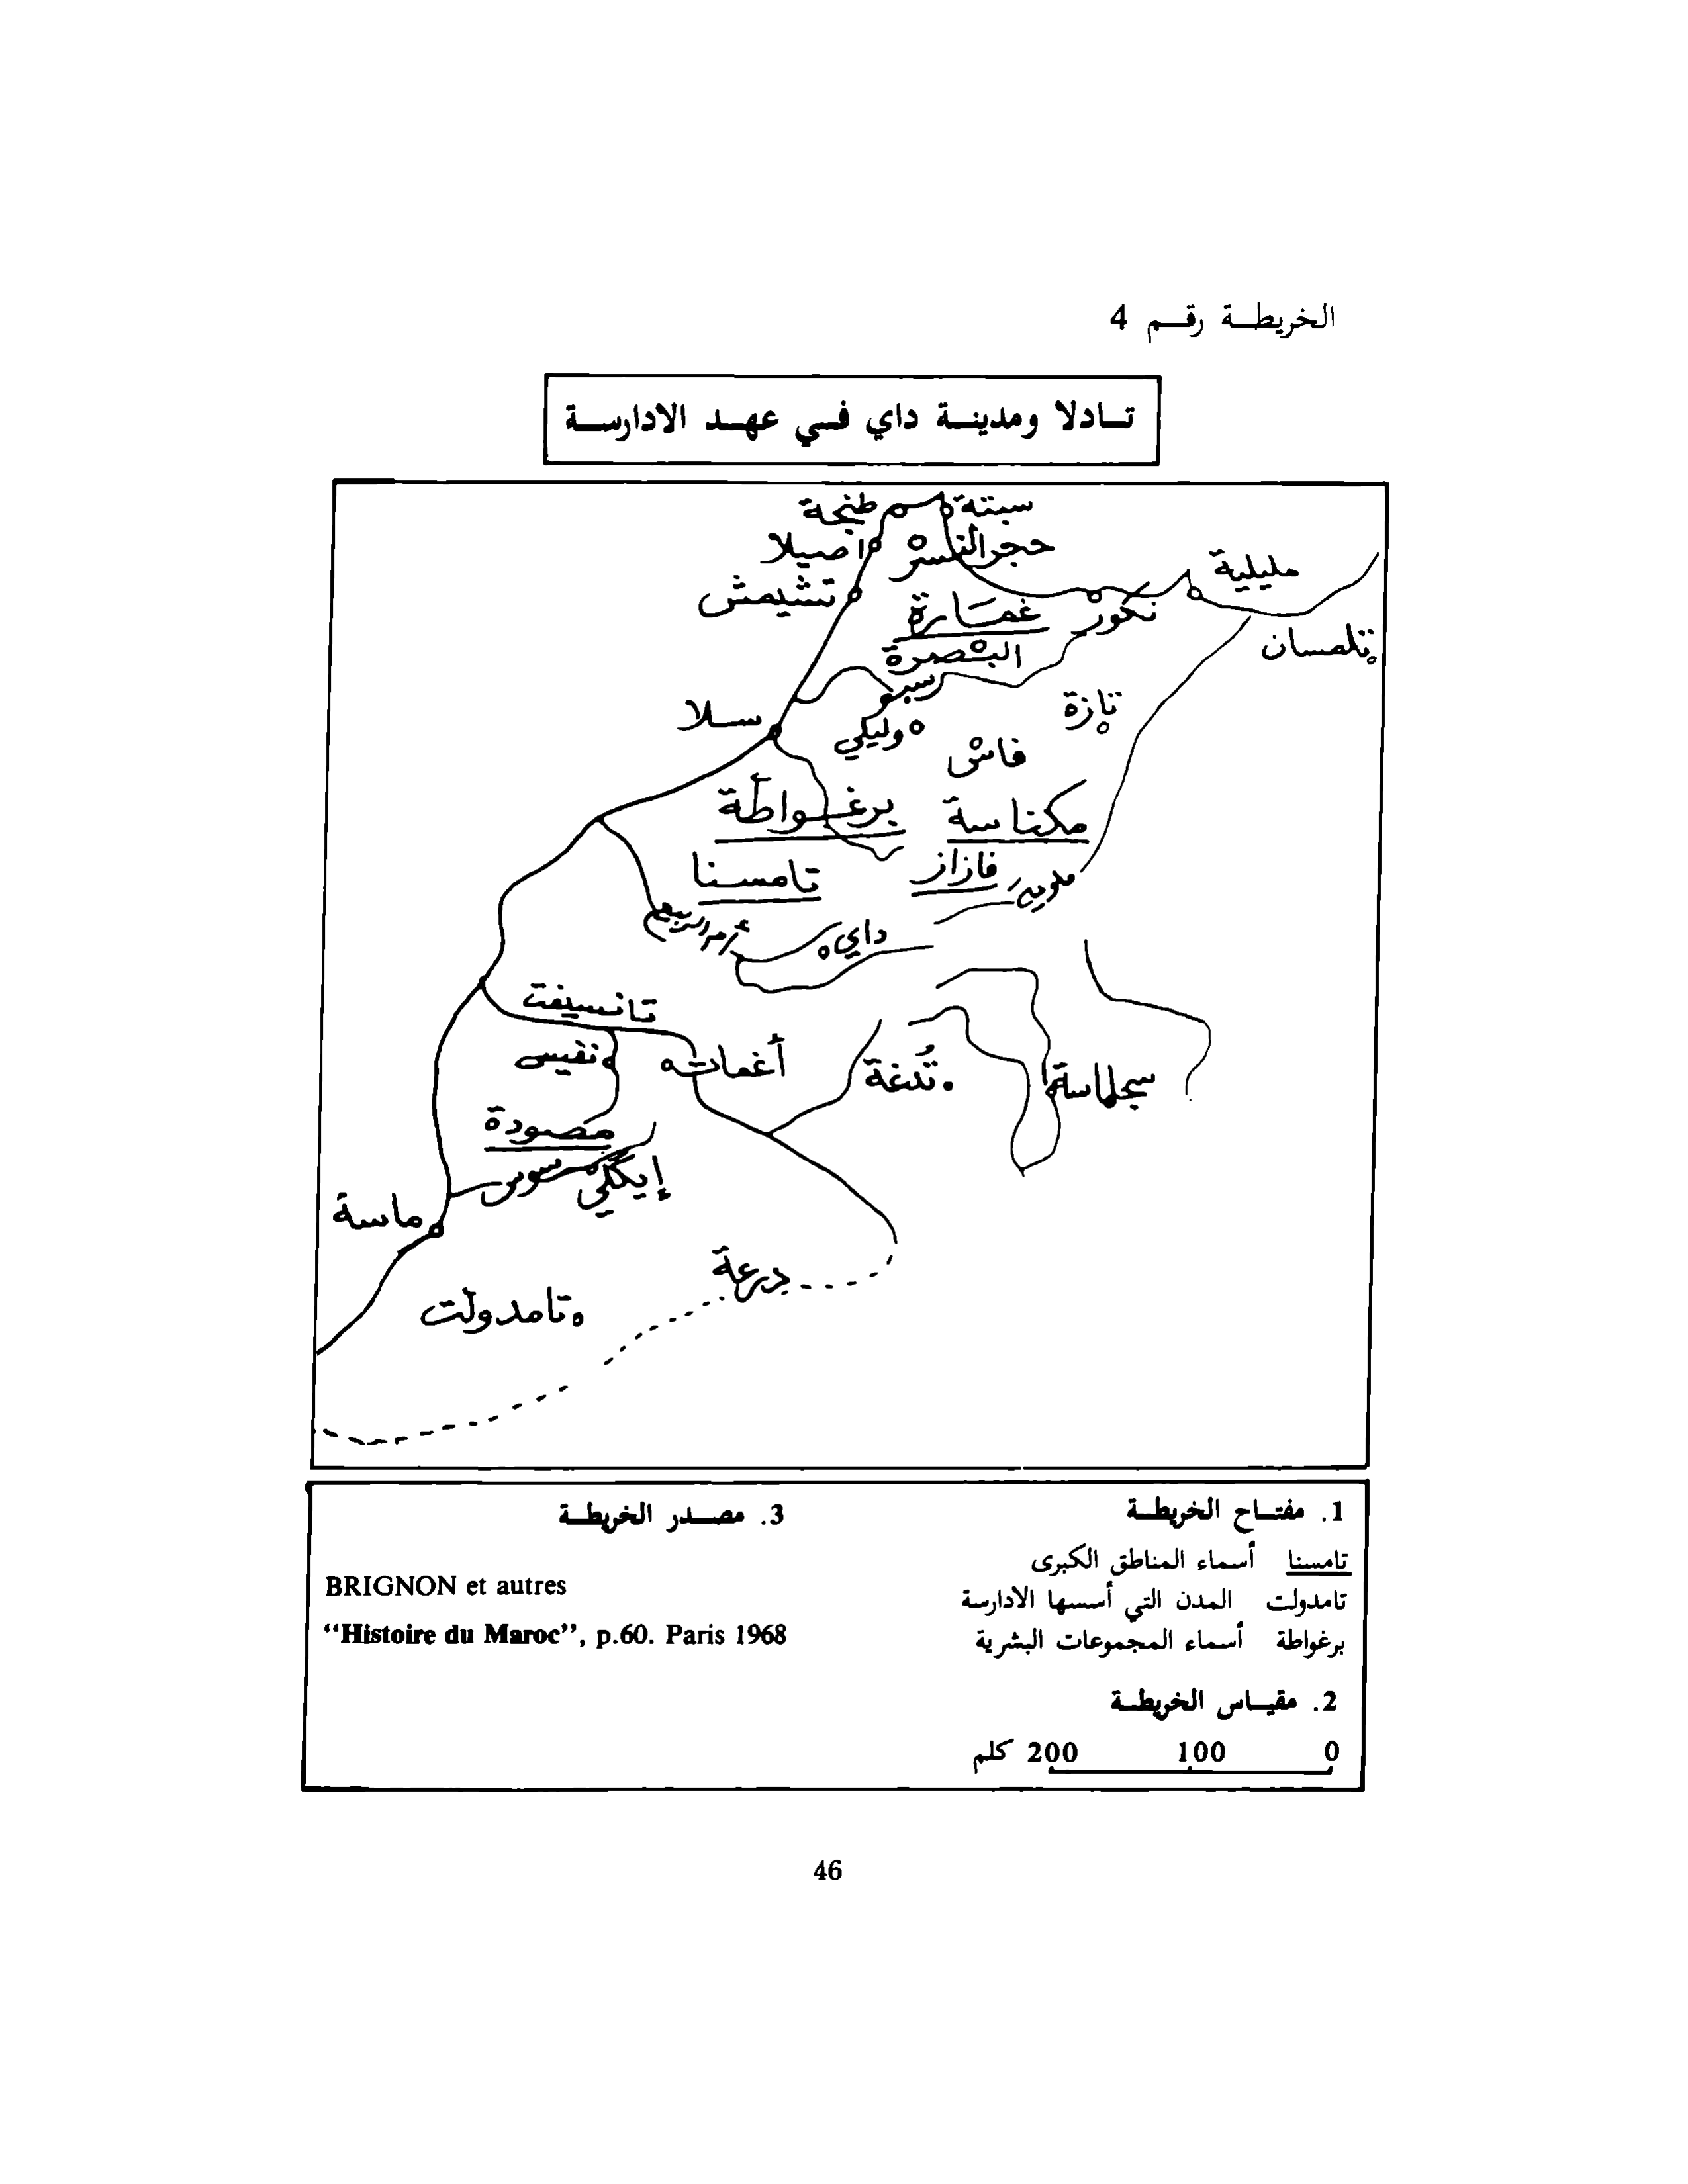 الخريطة رقم 4
تادلا ومدينة داي في عهد الادارسة
سبتة
طنجة
حجر النسر
اصيلا
مليلية
تشيمش
نكور
غمارة
تلمسان
البصرة
سبو
تازة
سلا
وليلي
فاس
برغواطة
مكناسة
فازاز
تامسنا
ملوية
أم الربيع
داي
تانسيفت
نفيس
أغمات
تُدغة
سجلماسة
مصمودة
سوس
إيگلي
ماسة
درعة
تامدولت
1. مفتاح الخريطة
تامسنا أسماء المناطق الكبرى
تامدولت المدن التي أسسها الادارسة
برغواطة أسماء المجموعات البشرية
2. مقياس الخريطة
0 100 200 كلم
3. مصدر الخريطة
BRIGNON et autres
“Histoire du Maroc”, p.60. Paris 1968
46